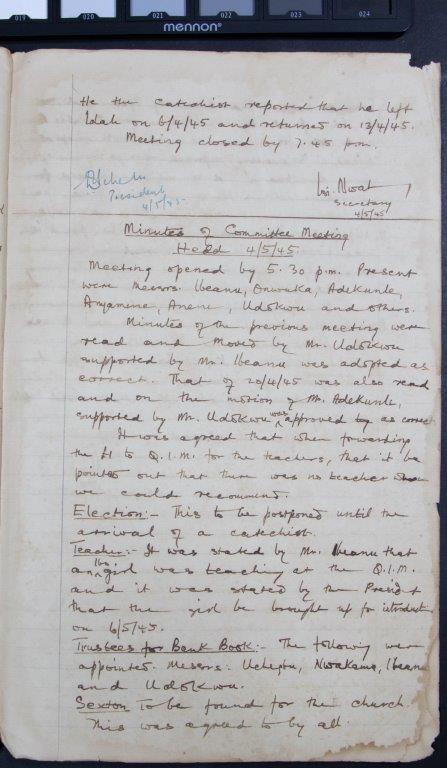 019 020 021 022 023 024
mennon
He the catechist reported that he left
Idah on 6/4/45 and returned on 13/4/45.
Meeting closed by 7.45 pm.
President
4/5/45
Secretary
4/5/45
Minutes of Committee Meeting
Held 4/5/45.
Meeting opened by 5.30 p.m. Present
were messrs. Ibeanu, Onwuka, Adekunle,
Anyamene, Anene, Udokwu and others.
Minutes of the previous meeting were
read and moved by Mr. Udokwu
supported by Mr. Ibeanu was adopted as
correct. That of 20/4/45 was also read
and on the motion of Mr. Adekunle,
supported by Mr. Udokwu was approved by as correct
It was agreed that when forwarding
the £1 to Q.I.M. for the teachers, that it be
pointed out that there was no teacher whom
we could recommend.
Election:- This to be postponed until the
arrival of a catechist.
Teacher:- It was stated by Mr. Ibeanu that
an Ibo girl was teaching at the Q.I.M.
and it was stated by the President
that the girl be brought up for introduction
on 6/5/45.
Trustees for Bank Book:- The following were
appointed. Messrs: Uchendu, Nwakama, Ibeanu
and Udokwu.
Sexton to be found for the church.
This was agreed to by all.